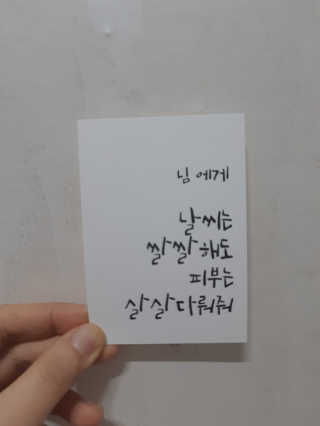 님에게
날씨는
쌀쌀해도
피부는
살살다뤄줘